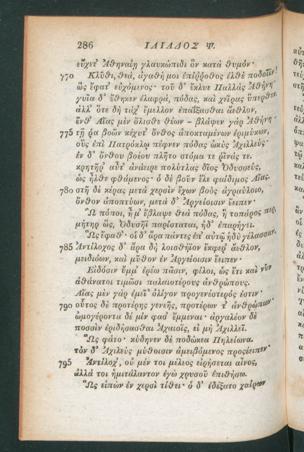 286 ΙΛΙΑΔΟΣ Ψ.
εὔχετ᾽ Ἀθηναίῃ γλαυκώπιδι ὃν κατὰ θυμόν·
770 Κλῦθι, θεὰ, ἀγαθή μοι ἐπίῤῥοθος ἐλθὲ ποδοῖϊν!
ὣς ἔφατ᾽ εὐχόμενος· τοῦ δ᾽ ἔκλυε Παλλὰς Ἀθήνη·
γυῖα δ᾽ ἔθηκεν ἐλαφρὰ, πόδας, καὶ χεῖρας ὕπερθεν.
ἀλλ᾽ ὅτε δὴ τάχ᾽ ἔμελλον ἐπαΐξασθαι ἄεθλον,
ἔνθ᾽ Αἴας μὲν ὄλισθε θέων – βλάψεν γὰρ Ἀθήνη·
775 τῇ ῥα βοῶν κέχυτ᾽ ὄνθος ἀποκταμένων ἐριμύκων,
οὓς ἐπὶ Πατρόκλῳ πέφνεν πόδας ὠκὺς Ἀχιλλεύς·
ἐν δ᾽ ὄνθου βοέου πλῆτο στόμα τε ῥῖνάς τε.
κρητῆρ᾽ αὖτ᾽ ἀνάειρε πολύτλας δῖος Ὀδυσσεὺς,
ὡς ἦλθε φθάμενος· ὁ δὲ βοῦν ἕλε φαίδιμος Αἴας.
780 στῆ δὲ κέρας μετὰ χερσὶν ἔχων βοὸς ἀγραύλοιο,
ὄνθον ἀποπτύων, μετὰ δ᾽ Ἀργείοισιν ἔειπεν·
Ὢ πόποι, ἦ μ᾽ ἔβλαψε θεὰ πόδας, ἣ τοπάρος περ
μήτηρ ὣς, Ὀδυσῆϊ παρίσταται, ἠδ᾽ ἐπαρήγει.
Ὣς ἔφαθ᾽· οἱ δ᾽ ἄρα πάντες ἐπ᾽ αὐτῷ ἡδὺ γέλασσαν.
785 Ἀντίλοχος δ᾽ ἄρα δὴ λοισθήϊον ἔκφερ᾽ ἄεθλον,
μειδιόων, καὶ μῦθον ἐν Ἀργείοισιν ἔειπεν·
Εἰδόσιν ὔμμ᾽ ἐρέω πᾶσιν, φίλοι, ὡς ἔτι καὶ νῦν
ἀθάνατοι τιμῶσι παλαιοτέρους ἀνθρώπους.
Αἴας μὲν γὰρ ἐμεῖ᾽ ὀλίγον προγενέστερός ἐστιν·
790 οὗτος δὲ προτέρης γενεῆς, προτέρων τ᾽ ἀνθρώπων·
ὠμογέροντα δέ μίν φασ᾽ ἔμμεναι· ἀργαλέον δὲ
ποσσὶν ἐριδήσασθαι Ἀχαιοῖς, εἰ μὴ Ἀχιλλεῖ.
Ὣς φάτο· κύδηνεν δὲ ποδώκεα Πηλείωνα.
τὸν δ᾽ Ἀχιλεὺς μύθοισιν ἀμειβόμενος προσέειπεν·
795 Ἀντίλοχ᾽, οὐ μέν τοι μέλεος εἰρήσεται αἶνος,
ἀλλά τοι ἡμιτάλαντον ἐγὼ χρυσοῦ ἐπιθήσω.
Ὣς εἰπὼν ἐν χερσὶ τίθει· ὁ δ᾽ ἐδέξατο χαίρων